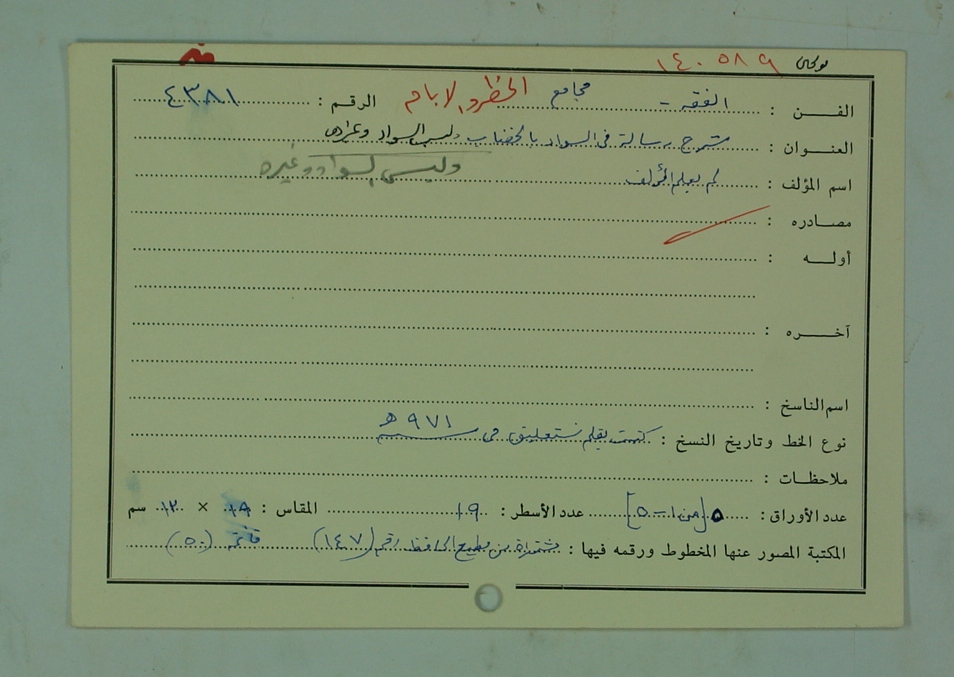 ١٤٠٥٨٩
الفن : الفقه - مجامع الحظر والاباحة الرقم : ٤٣٨١
العنوان : شرح رسالة في السواد بالخضاب ولبس السواد وغيرها
وليس السواد وغيره
اسم المؤلف : لم يعلم المؤلف
مصادره :
أوله :
آخره :
اسم الناسخ :
نوع الخط وتاريخ النسخ : كتبت بقلم نستعليق في ٩٧١ هـ
ملاحظات :
عدد الأوراق : ٥ [من ١-٥] عدد الأسطر : ١٩ المقاس : ١٨ × ١٢ سم
المكتبة المصور عنها المخطوط ورقمه فيها : مشتراة من مطيع الحافظ رقم (١٤٧) قائمة (٥٠)